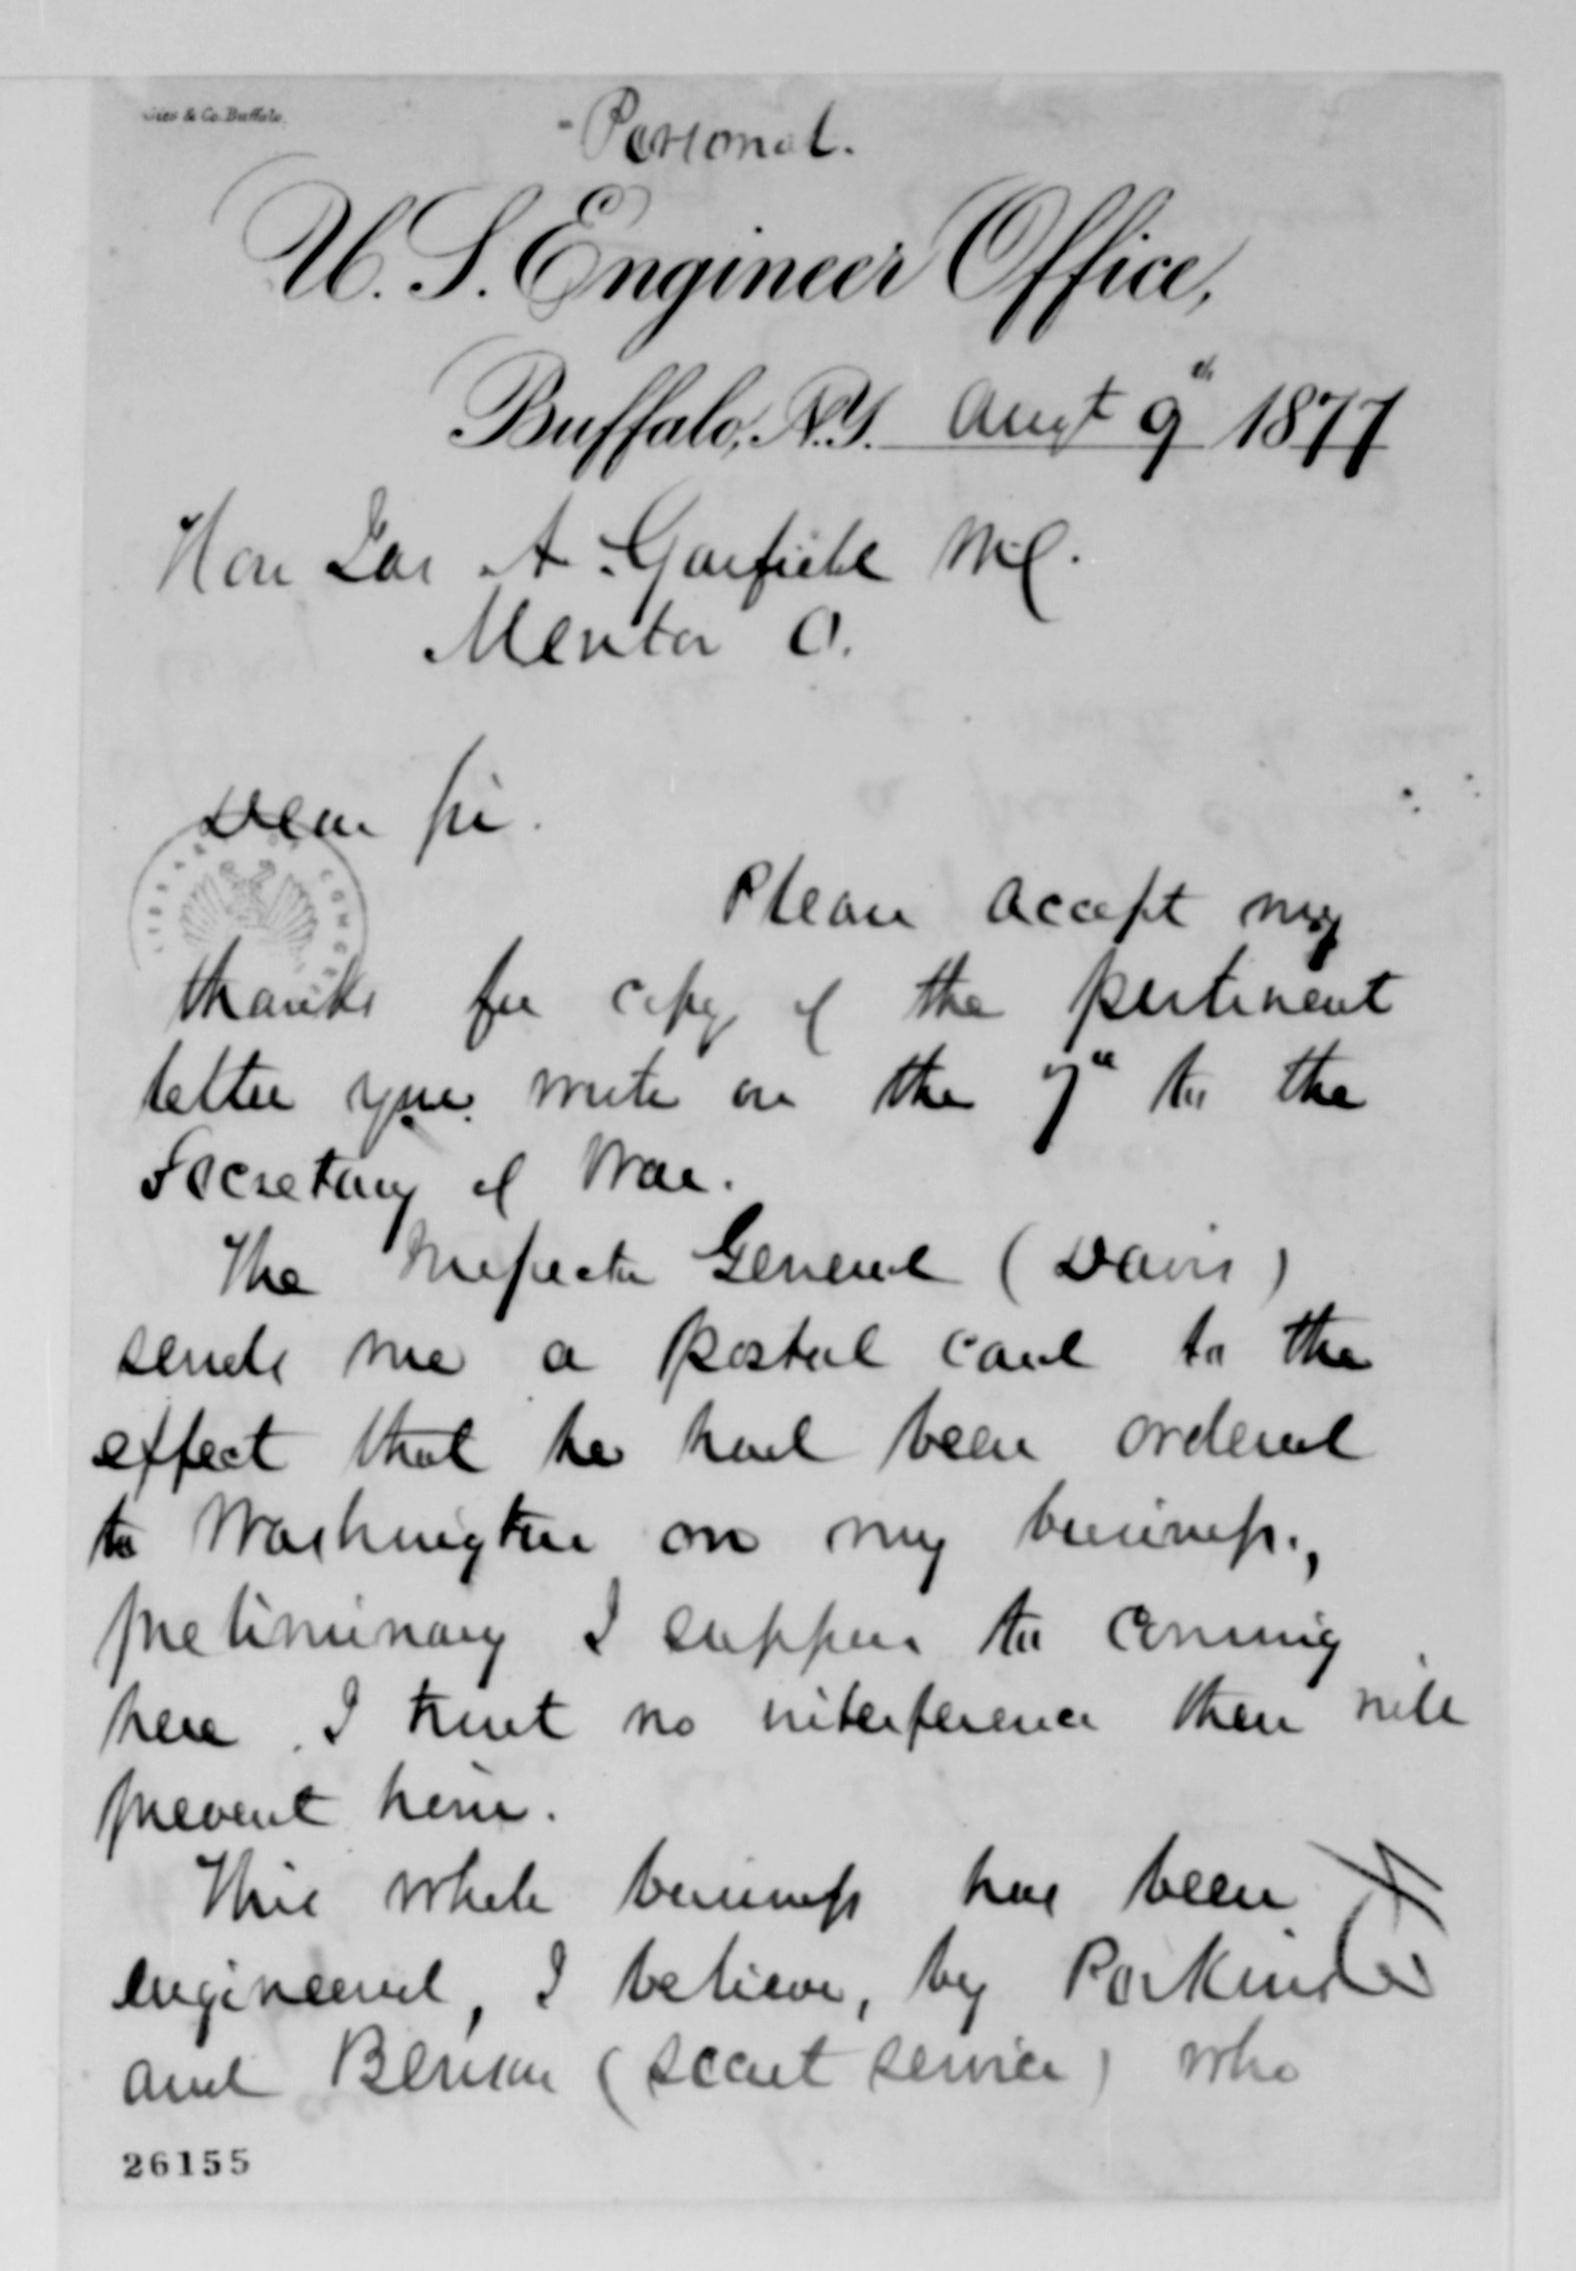 Gies & Co. Buffalo.
Personal.
U. S. Engineer Office,
Buffalo, N.Y. Augt 9th 1877
Hon Jas A. Garfield M.C.
Mentor O.
Dear Sir.
Please accept my
thanks for copy of the pertinent
letter you wrote on the 7th to the
Secretary of War.
The Inspector General (Davis)
sends me a postal card to the
effect that he had been ordered
to Washington on my business.,
preliminary I suppose to coming
here. I trust no interference there will
prevent him.
This whole business has been
engineered, I believe, by
and Benson (secret service) who
LIBRARY OF CONGRESS
26155